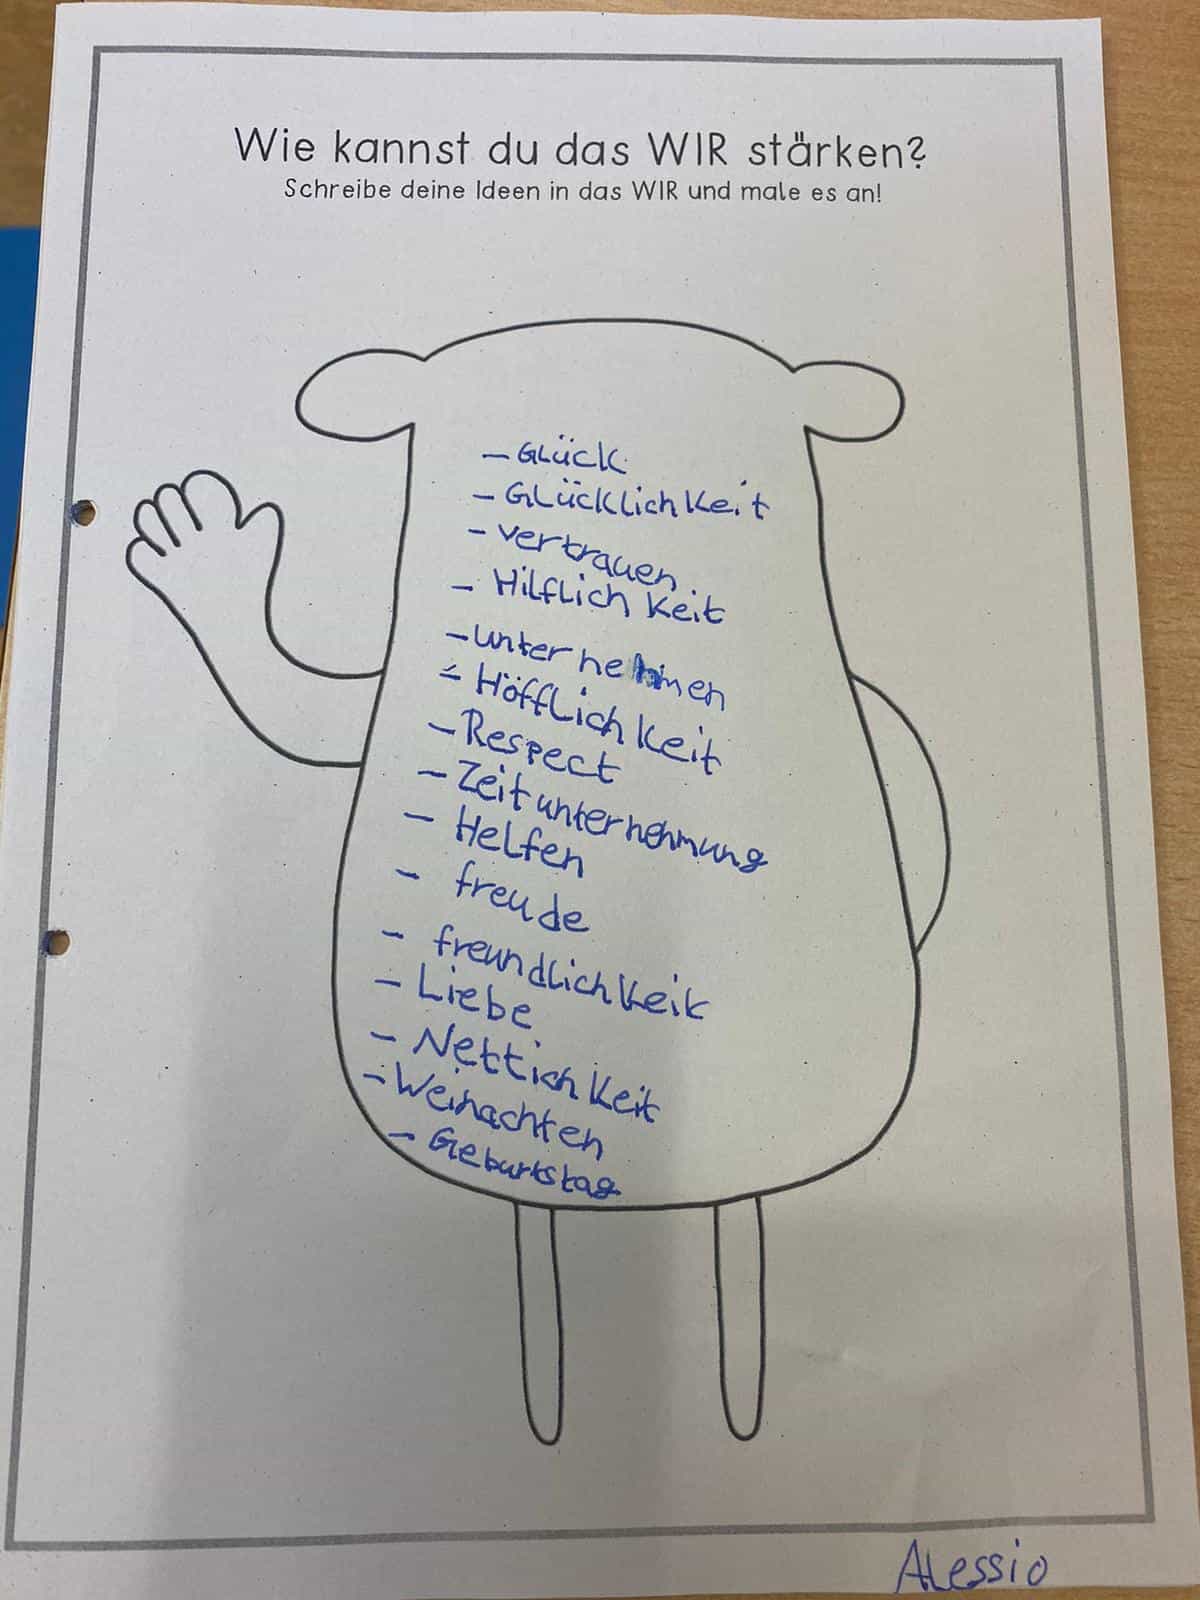 Wie kannst du das WIR stärken?
Schreibe deine Ideen in das WIR und male es an!
- Glück
- Glücklichkeit
- vertrauen
- Hilflichkeit
- unternehmen
- Höfflichkeit
- Respect
- Zeitunternehmung
- Helfen
- freude
- freundlichkeit
- Liebe
- Nettichkeit
- Weinachten
- Geburtstag
Alessio